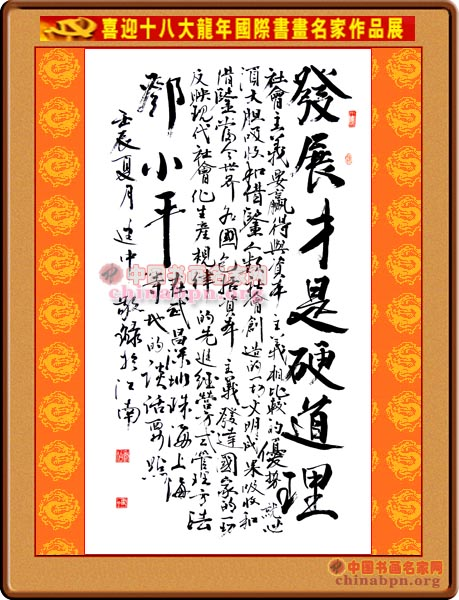 喜迎十八大龍年國際書畫名家作品展
發展才是硬道理
社會主義要贏得與資本主義相比較的優勢就必
須大胆吸收和借鑒人類社會創造的一切文明成果吸收和
借鑒當今世界各國包括資本主義發達國家的一切
反映現代社會化生産規律的先進經營方式管理方法
鄧小平
在武昌深圳珠海上海
等地的談話要點
壬辰夏月建中敬錄於江南
中国书画名家网
chinabpn.org
中国书画名家网
chinabpn.org